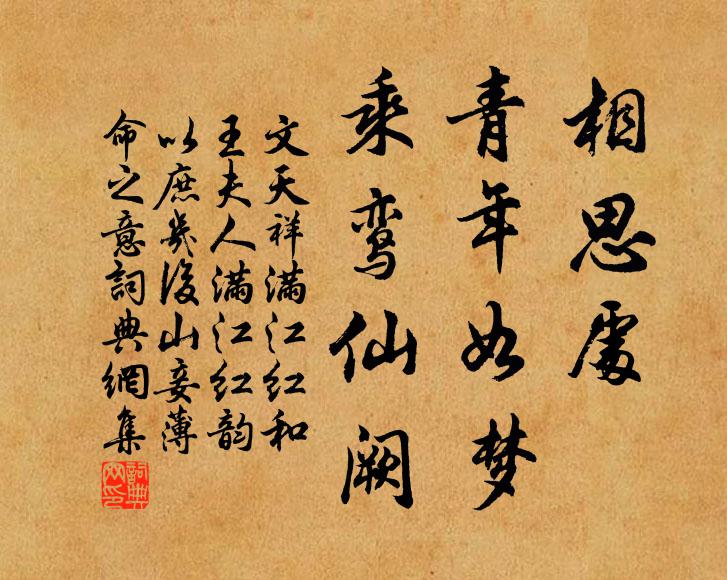 相思處
青年如梦
乘鸾仙阙
文天祥满江红和
王夫人满江红韵
以庶几後山妾薄
命之意詞典網集
詞典網印